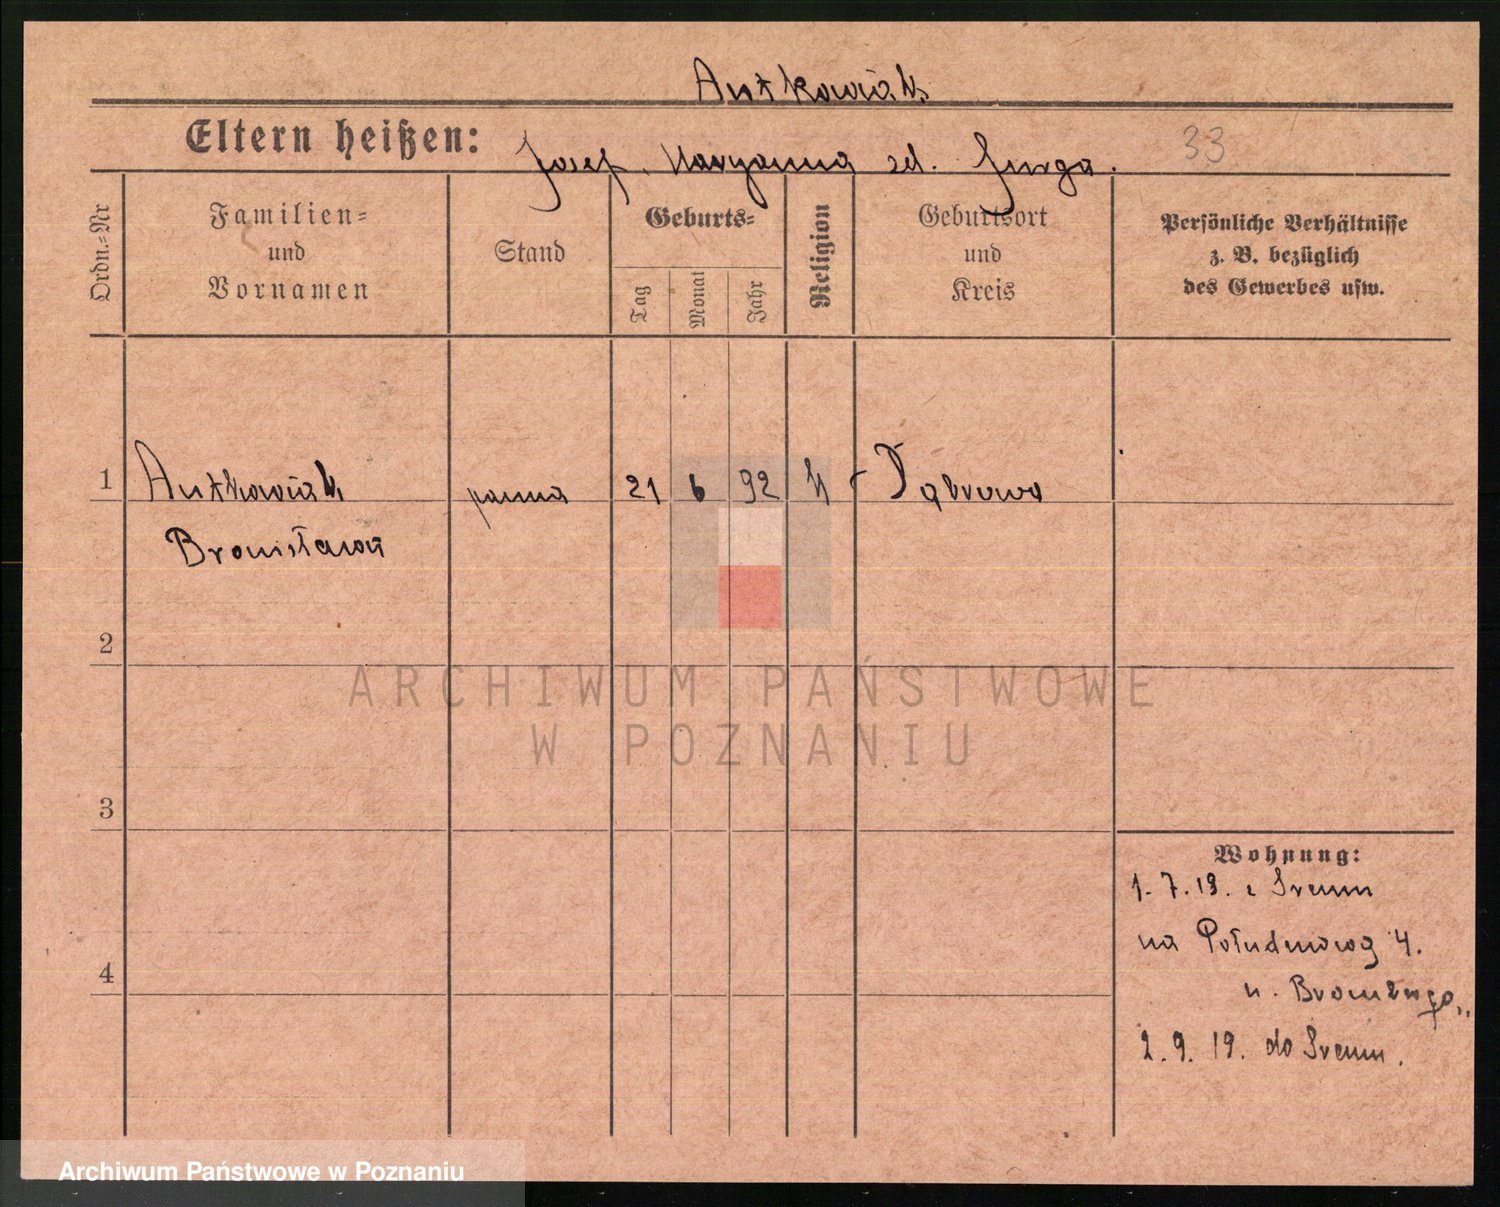 Antkowiak
Eltern heißen: Josef, Maryanna zd. Jurga.
33
Ordn.=Nr
Familien=
und
Vornamen
Stand
Geburts=
Tag
Monat
Jahr
Religion
Geburtsort
und
Kreis
Persönliche Verhältnisse
z. B. bezüglich
des Gewerbes usw.
1 Antkowiak panna 21 6 92 k Dąbrowa
Bronisława
2
3
4
Wohnung:
1. 7. 19. z Sremu
na Południową 4.
u.
2. 9. 19. do Sremu.
ARCHIWUM PAŃSTWOWE
W POZNANIU
Archiwum Państwowe w Poznaniu